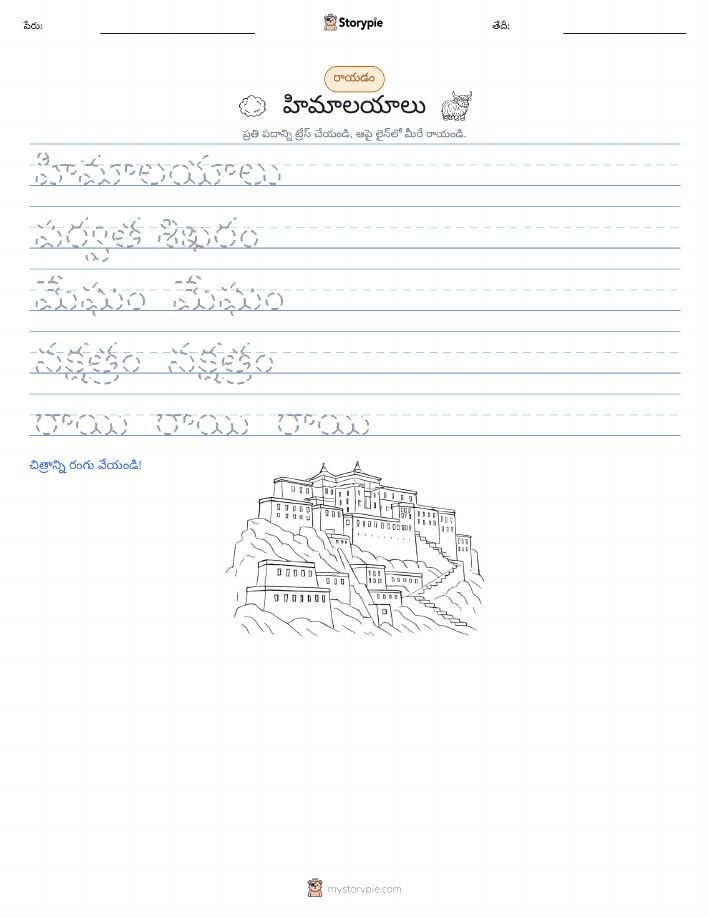 పేరు:
Storypie
తేదీ:
రాయడం
హిమాలయాలు
ప్రతి పదాన్ని ట్రేస్ చేయండి, ఆపై లైన్‌లో మీరే రాయండి.
హిమాలయాలు
పర్వత శిఖరం
మేఘం మేఘం
నక్షత్రం నక్షత్రం
రాయి రాయి రాయి
చిత్రాన్ని రంగు వేయండి!
mystorypie.com